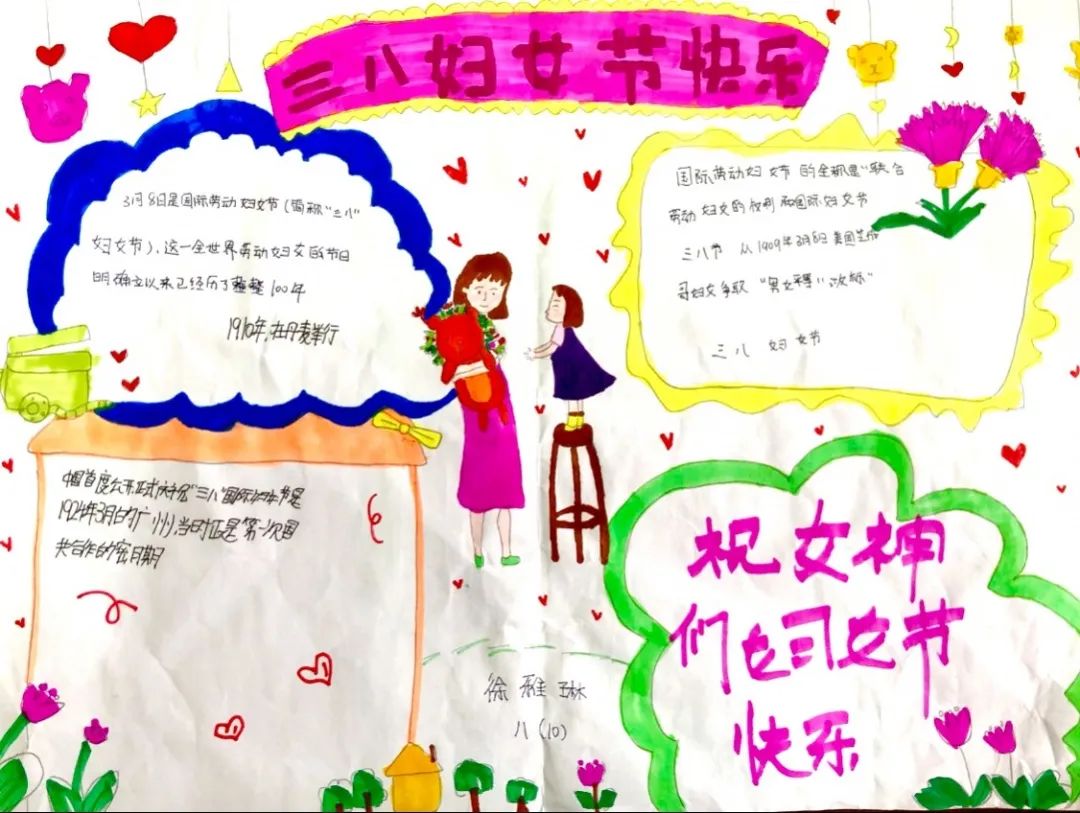 三八妇女节快乐
3月8日是国际劳动妇女节(简称"三八"
妇女节).这一全世界劳动妇女的节日
自确立以来已经历了整整100年
1910年,在丹麦举行
国际劳动妇女节的全称是"联合
劳动妇女的权利和国际妇女节
三八节 从1909年3月8日美国芝加
哥妇女争取"男女平等"
三八 妇女节
中国首度公开正式庆祝"三八"国际妇女节是
1924年3月的广州,当时正是第一次国
共合作的蜜月期
祝女神
们
节
快乐
徐雅琳
八(10)